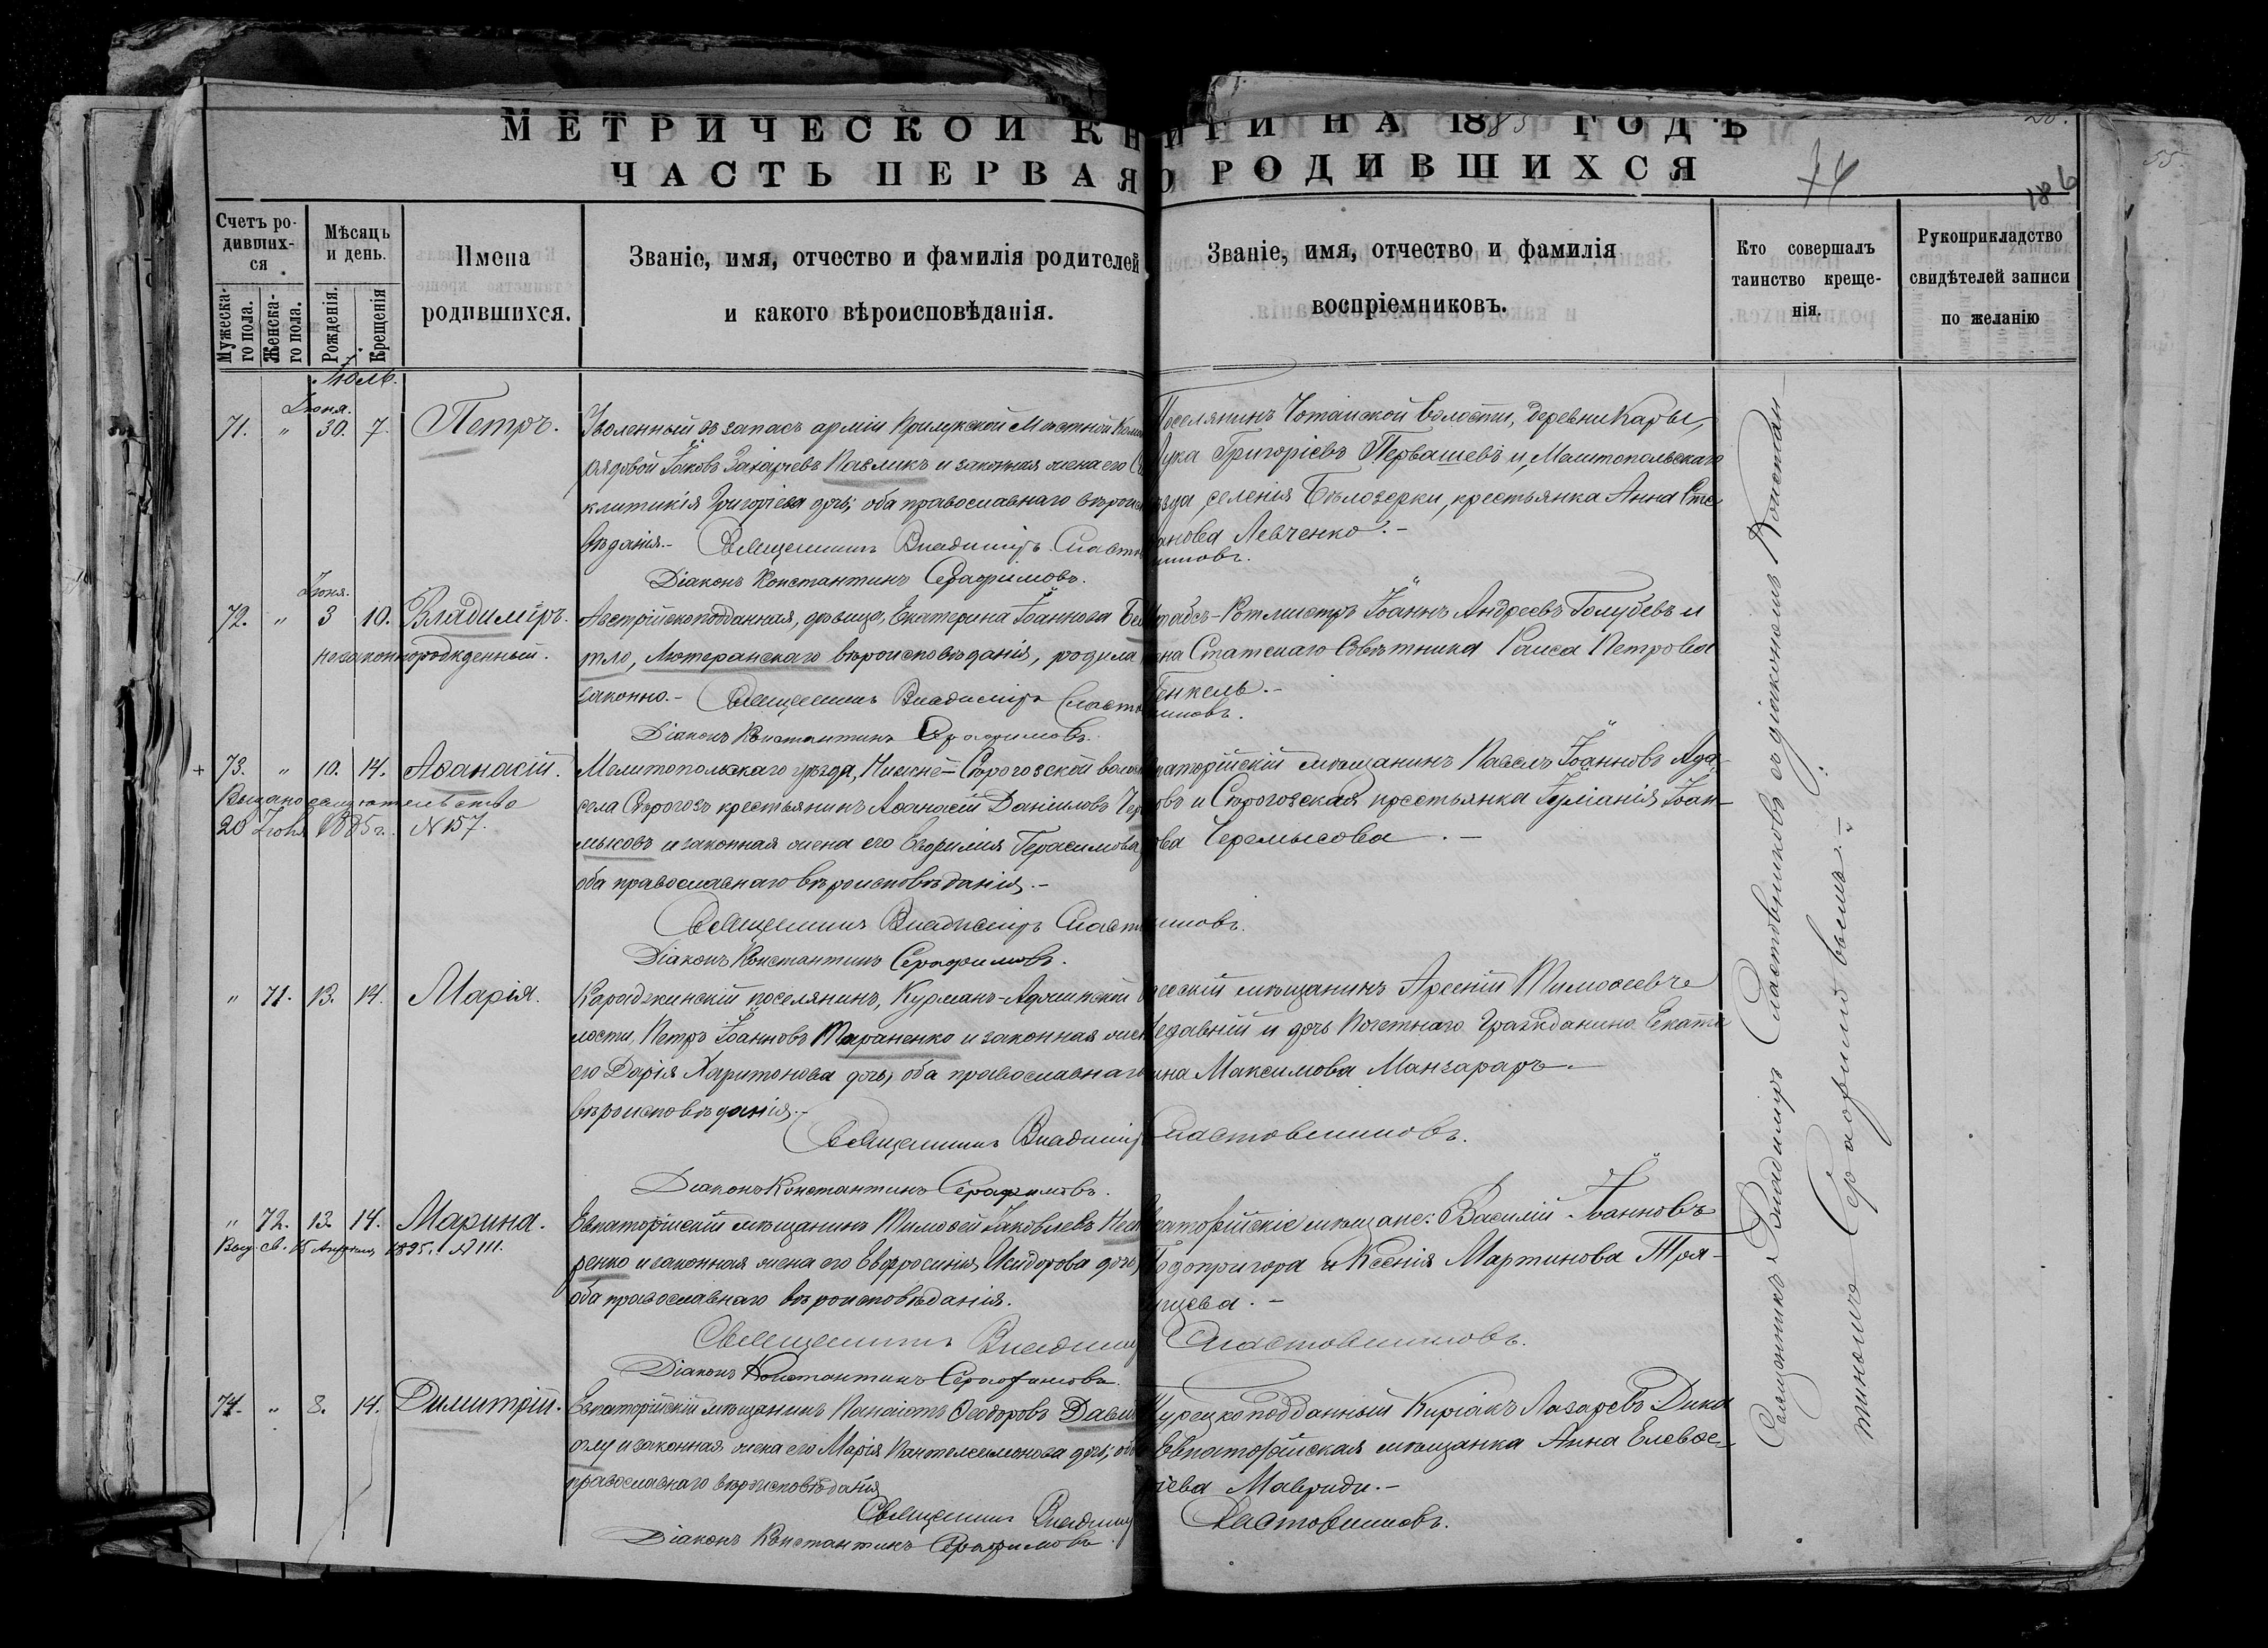 МЕТРИЧЕСКОЙ КНИГИ НА 1885 ГОДЪ
ЧАСТЬ ПЕРВАЯ О РОДИВШИХСЯ
74
186
55.
Счетъ ро-
дивших-
ся
Мужеска-
го пола.
Женска-
го пола.
Мѣсяцъ
и день.
Рожденія.
Крещенія
Имена
родившихся.
Званіе, имя, отчество и фамилія родителей
и какого вѣроисповѣданія.
Званіе, имя, отчество и фамилія
воспріемниковъ.
Кто совершалъ
таинство креще-
нія.
Рукоприкладство
свидѣтелей записи
по желанію
Іюль.
Іюня.
71. " 30. 7. Петръ.
Уволенный въ запасъ арміи Прилукской Мѣстной
рядовой Іаковъ Захаріевъ Павликъ и законная жена его
клитикія Григоріева дочь; оба православнаго вѣроиспо
вѣданія.- Священникъ Владиміръ Сластовниковъ.
Діаконъ Константинъ Серафимовъ.
Поселянинъ Чотайской волости, деревни Кары,
Лука Григоріевъ Первашевъ и, Мелитопольскаго
уѣзда, селенія Бѣлозерки, крестьянка Анна Сте
панова Левченко.-
Іюня.
72. " 3 10. Владиміръ.
незаконнорожденный.
Австрійскоподданная, дѣвица, Екатерина Іоаннова
тло, Лютеранскаго вѣроисповѣданія, родила
законно.- Священникъ Владиміръ Сластовниковъ.
Діаконъ Константинъ Серафимовъ.
Штабсъ-Ротмистръ Іоаннъ Андреевъ Голубевъ и
жена Статскаго Совѣтника Раиса Петрова
Генкель.-
+ 73. " 10. 14. Аѳанасій.
Выдано свидѣтельство
20 Іюля 1885 г. № 157.
Мелитопольскаго уѣзда, Нижне-Сѣрогозской волос
села Сѣрогозъ крестьянинъ Аѳанасій Даніиловъ Чере
мысовъ и законная жена его Евфимія Герасимова
оба православнаго вѣроисповѣданія.-
Священникъ Владиміръ Сластовниковъ.
Діаконъ Константинъ Серафимовъ.
Евпаторійскій мѣщанинъ Павелъ Іоанновъ
и Сѣрогозская крестьянка Іуліанія Іоан-
нова Черемысова.-
" 71. 13. 14. Марія.
Караджинскій поселянинъ, Курманъ-Аджинской во
лости, Петръ Іоанновъ Тараненко и законная жена
его Дарія Харитонова дочь, оба православнаго
вѣроисповѣданія.-
Священникъ Владиміръ Сластовниковъ.
Діаконъ Константинъ Серафимовъ.
Одесскій мѣщанинъ Арсеній Тимоѳеевъ
и дочь Почетнаго Гражданина Екате
рина Максимова Мангараръ.-
" 72. 13. 14. Марина.
Выд. св. 15 1895 г. № 111.
Евпаторійскій мѣщанинъ Тимоѳей Іаковлевъ Несте
ренко и законная жена его Евфросинія Исидорова дочь,
оба православнаго вѣроисповѣданія.
Священникъ Владиміръ Сластовниковъ.
Діаконъ Константинъ Серафимовъ.
Евпаторійскіе мѣщане: Василій Іоанновъ
Подопригора и Ксенія Мартинова Тря-
пицева.-
74. " 8. 14. Димитрій.
Евпаторійскій мѣщанинъ Панаіотъ Ѳеодоровъ
оглу и законная жена его Марія Пантелеимонова дочь; оба
православнаго вѣроисповѣданія
Священникъ Владиміръ Сластовниковъ.
Діаконъ Константинъ Серафимовъ.
Турецкоподданный Киріакъ Лазаревъ Дика
Евпаторійская мѣщанка Анна Елевѳе-
ріева Мавриди.-
Священникъ Владиміръ Сластовниковъ съ діакономъ Констан-
тиномъ Серафимовымъ.-